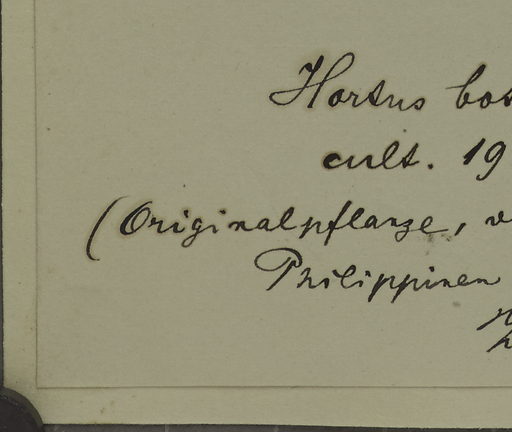 Hortus bot
cult. 19
(Originalpflanze, v
Philippinen